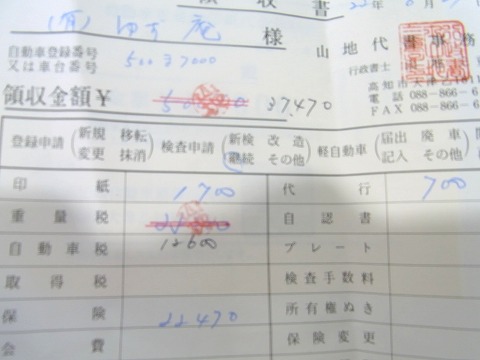 領収書
(有) ゆず庵 様
山地代書事務
自動車登録番号
又は車台番号 500 37000
行政書士 山
高知市大津
電話 088-866-6
FAX 088-866-6
領収金額¥ 37,470
登録申請 (新規 移転 変更 抹消) 検査申請 (新検 改造 継続 その他) 軽自動車 (届出 廃車 記入 その他
印紙 1700 代行 700
重量税 自認書
自動車税 12600 プレート
取得税 検査手数料
保険 22470 所有権ぬき
会費 保険変更